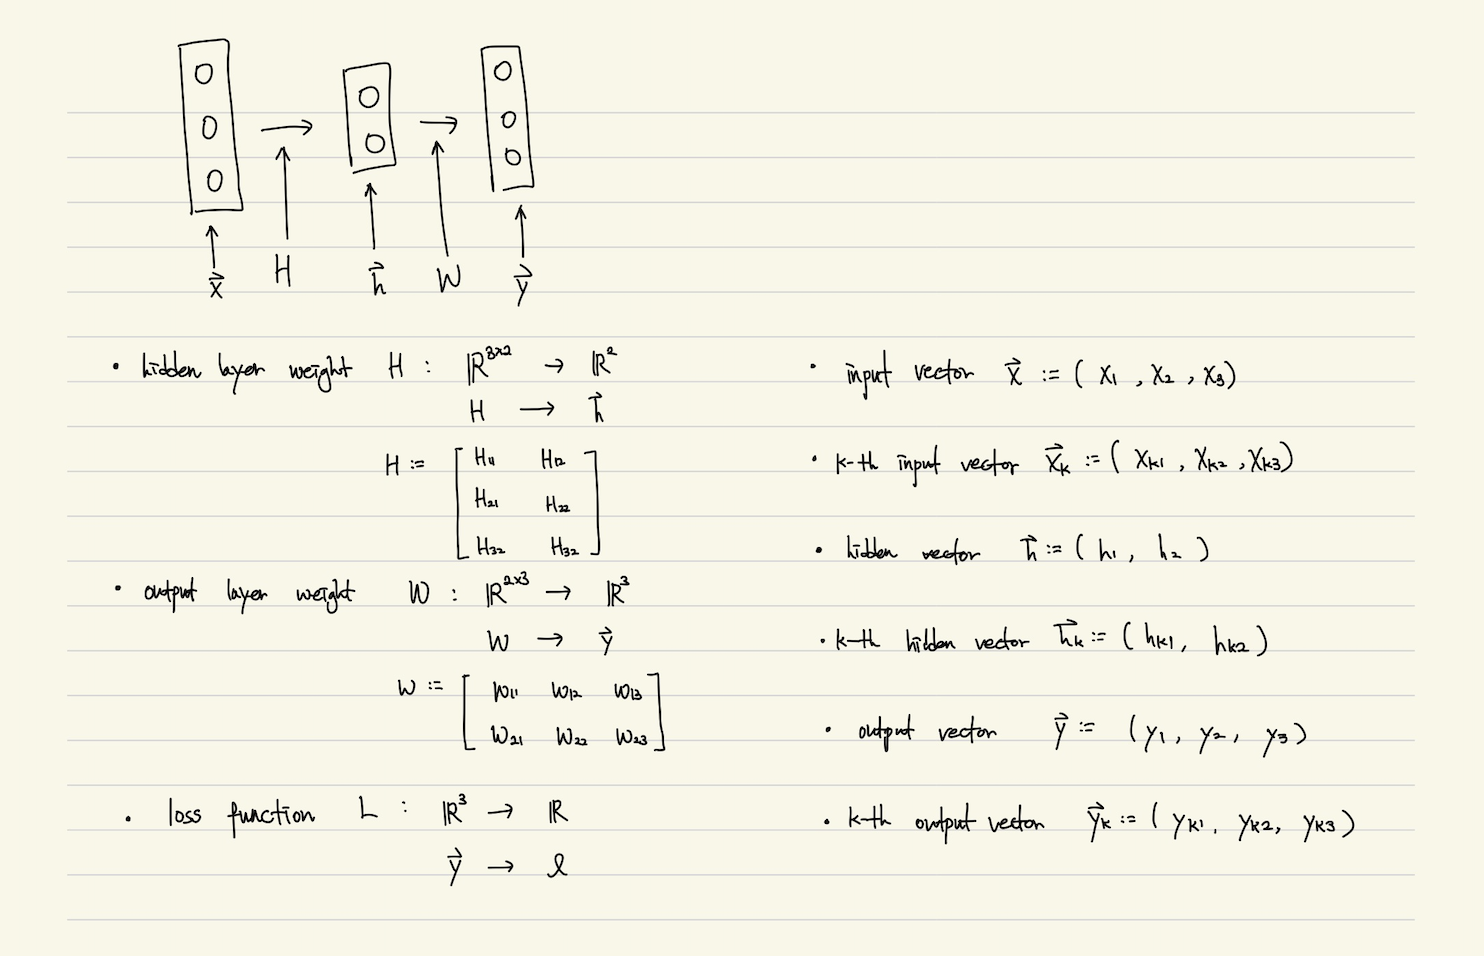 x⃗ H h⃗ W y⃗
• hidden layer weight H : ℝ³ˣ² → ℝ²
H → h⃗
H := [ H₁₁ H₁₂
H₂₁ H₂₂
H₃₂ H₃₂ ]
• output layer weight W : ℝ²ˣ³ → ℝ³
W → y⃗
W := [ W₁₁ W₁₂ W₁₃
W₂₁ W₂₂ W₂₃ ]
• loss function L : ℝ³ → ℝ
y⃗ → ℓ
• input vector x⃗ := ( x₁ , x₂ , x₃)
• k-th input vector x⃗ₖ := ( xₖ₁ , xₖ₂ , xₖ₃)
• hidden vector h⃗ := ( h₁, h₂ )
• k-th hidden vector h⃗ₖ := ( hₖ₁, hₖ₂ )
• output vector y⃗ := (y₁, y₂, y₃)
• k-th output vector y⃗ₖ := ( yₖ₁, yₖ₂, yₖ₃)